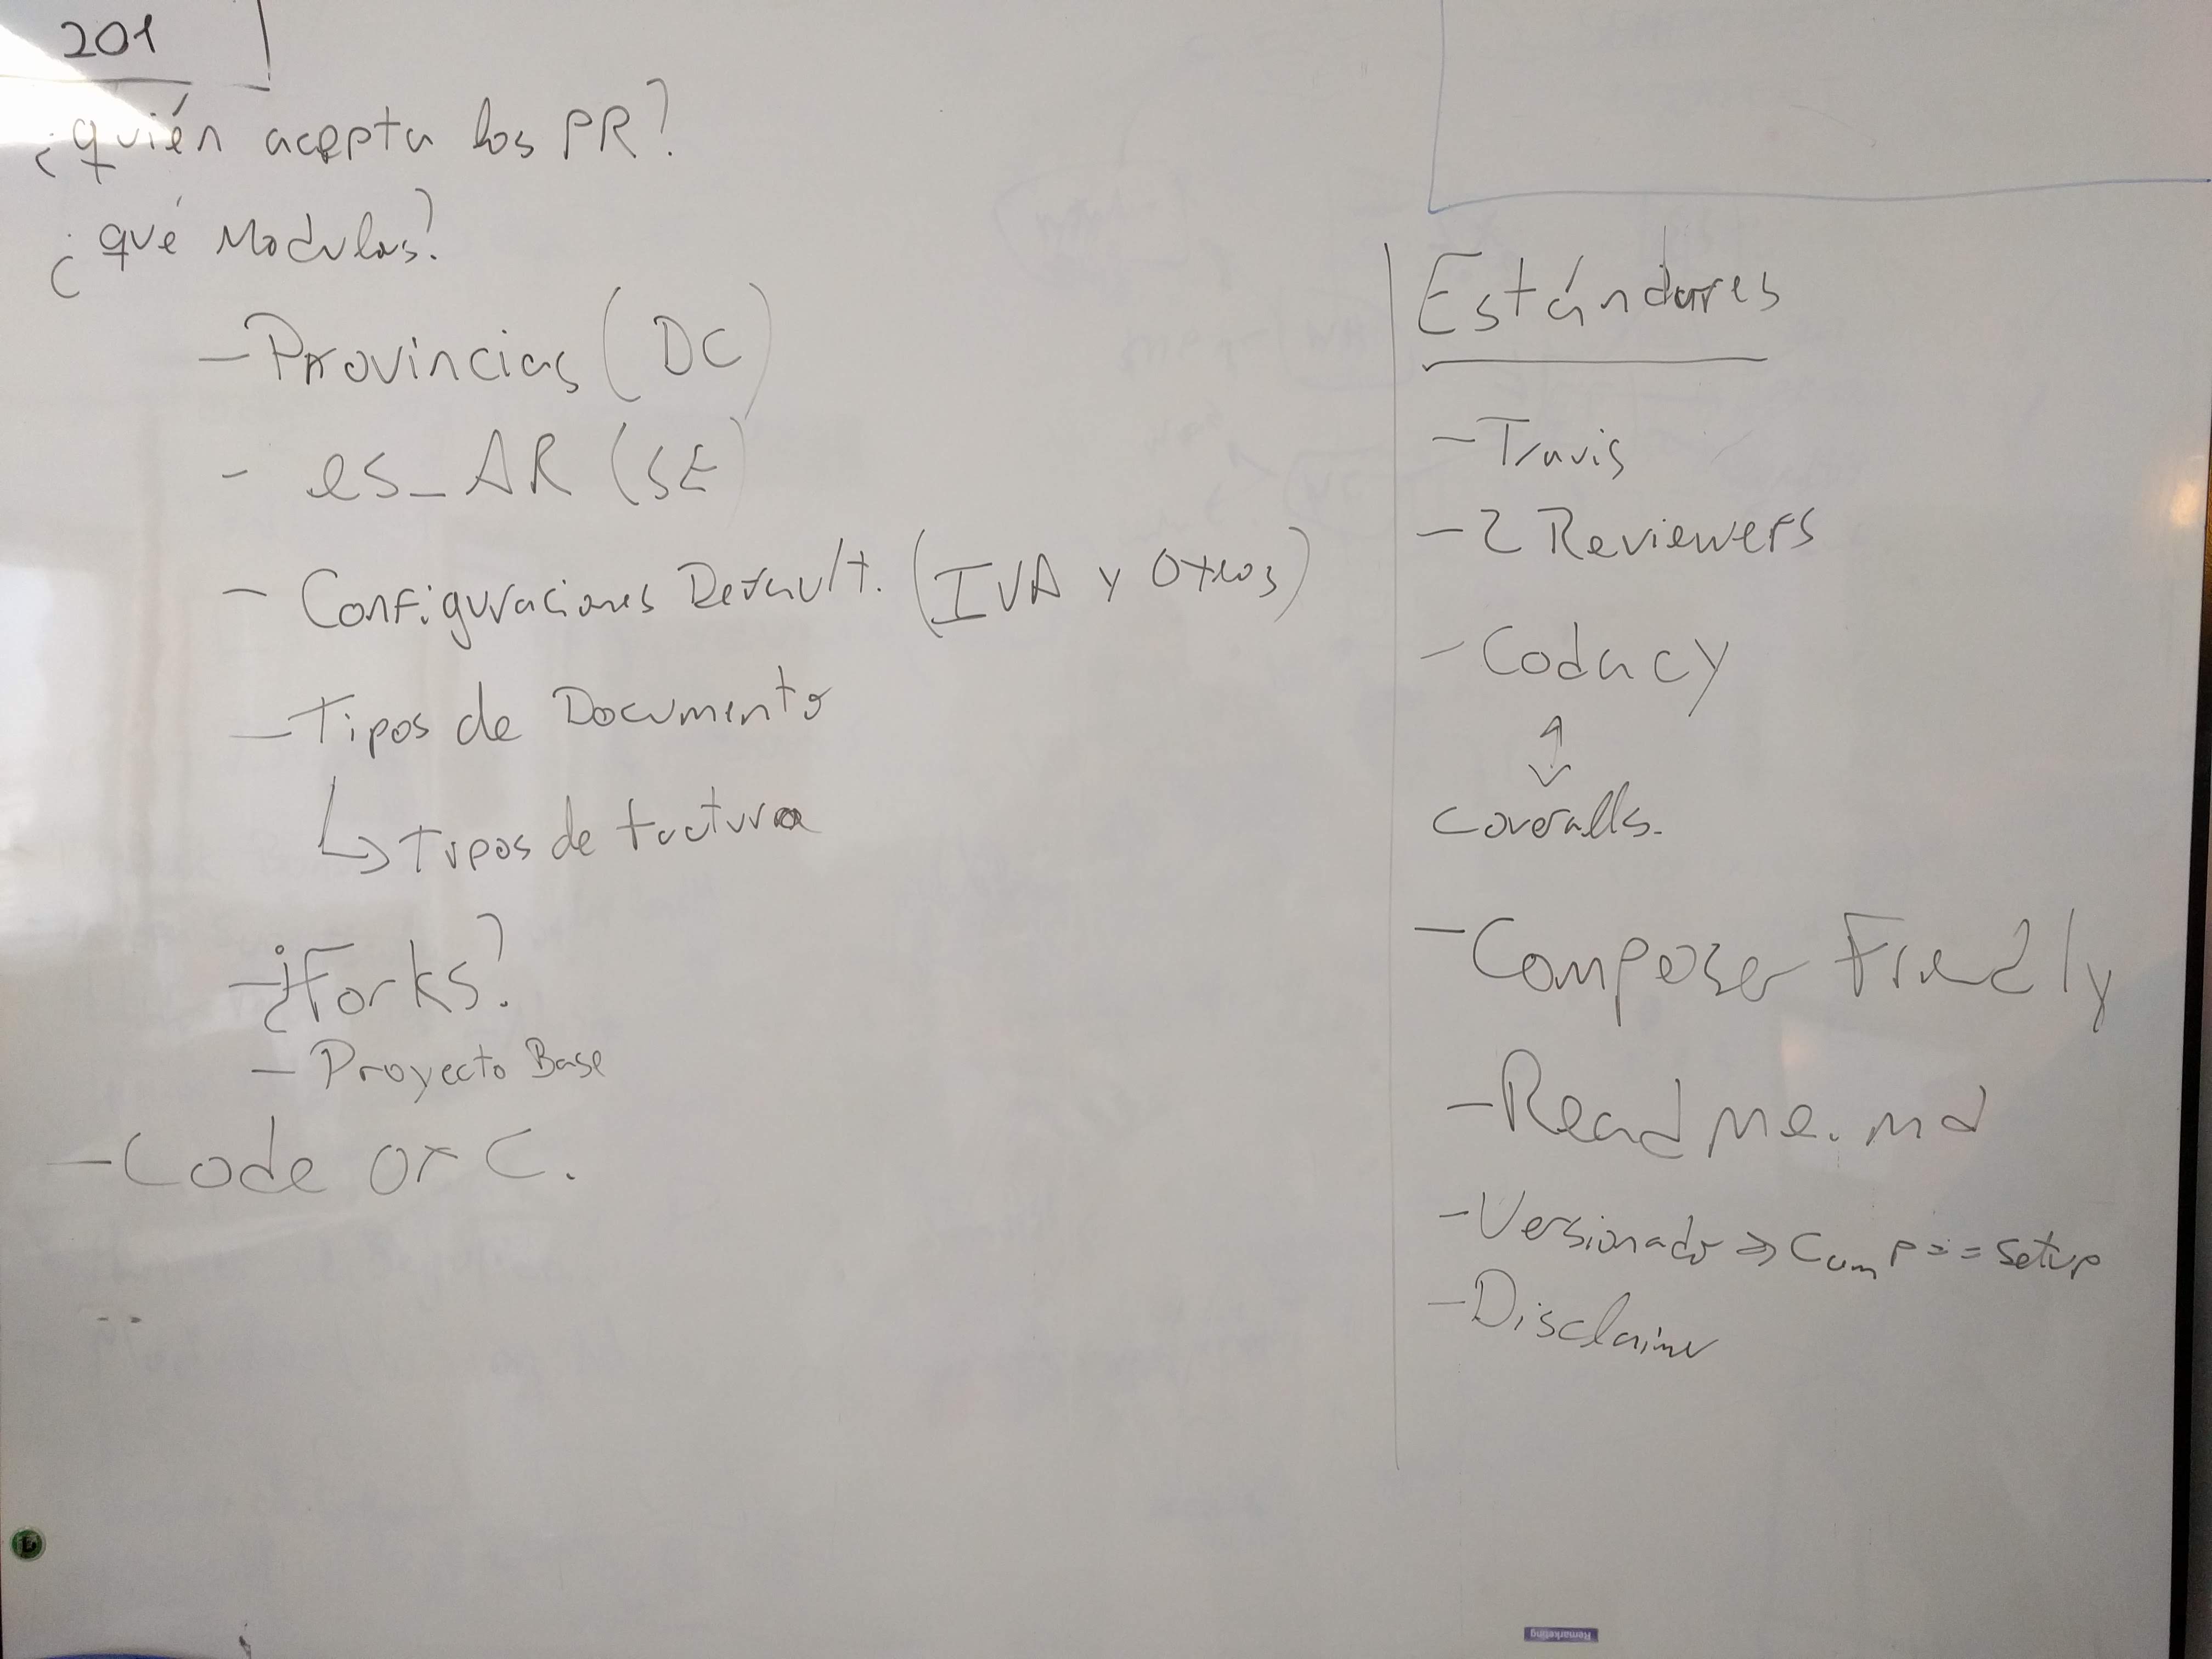 201
¿quién acepta los PR?
¿qué Modulos?
- Provincias (DC)
- es_AR (SE)
- Configuraciones Default. (IVA y Otros)
- Tipos de Documento
↳ tipos de factura
- ¿Forks?
- Proyecto Base
- Code of C.
Estándares
- Travis
- 2 Reviewers
- Codacy
↕
coveralls.
- Composer Friendly
- Readme.md
- Versionado ⇒ Comp == setup
- Disclaimer
Remarketing